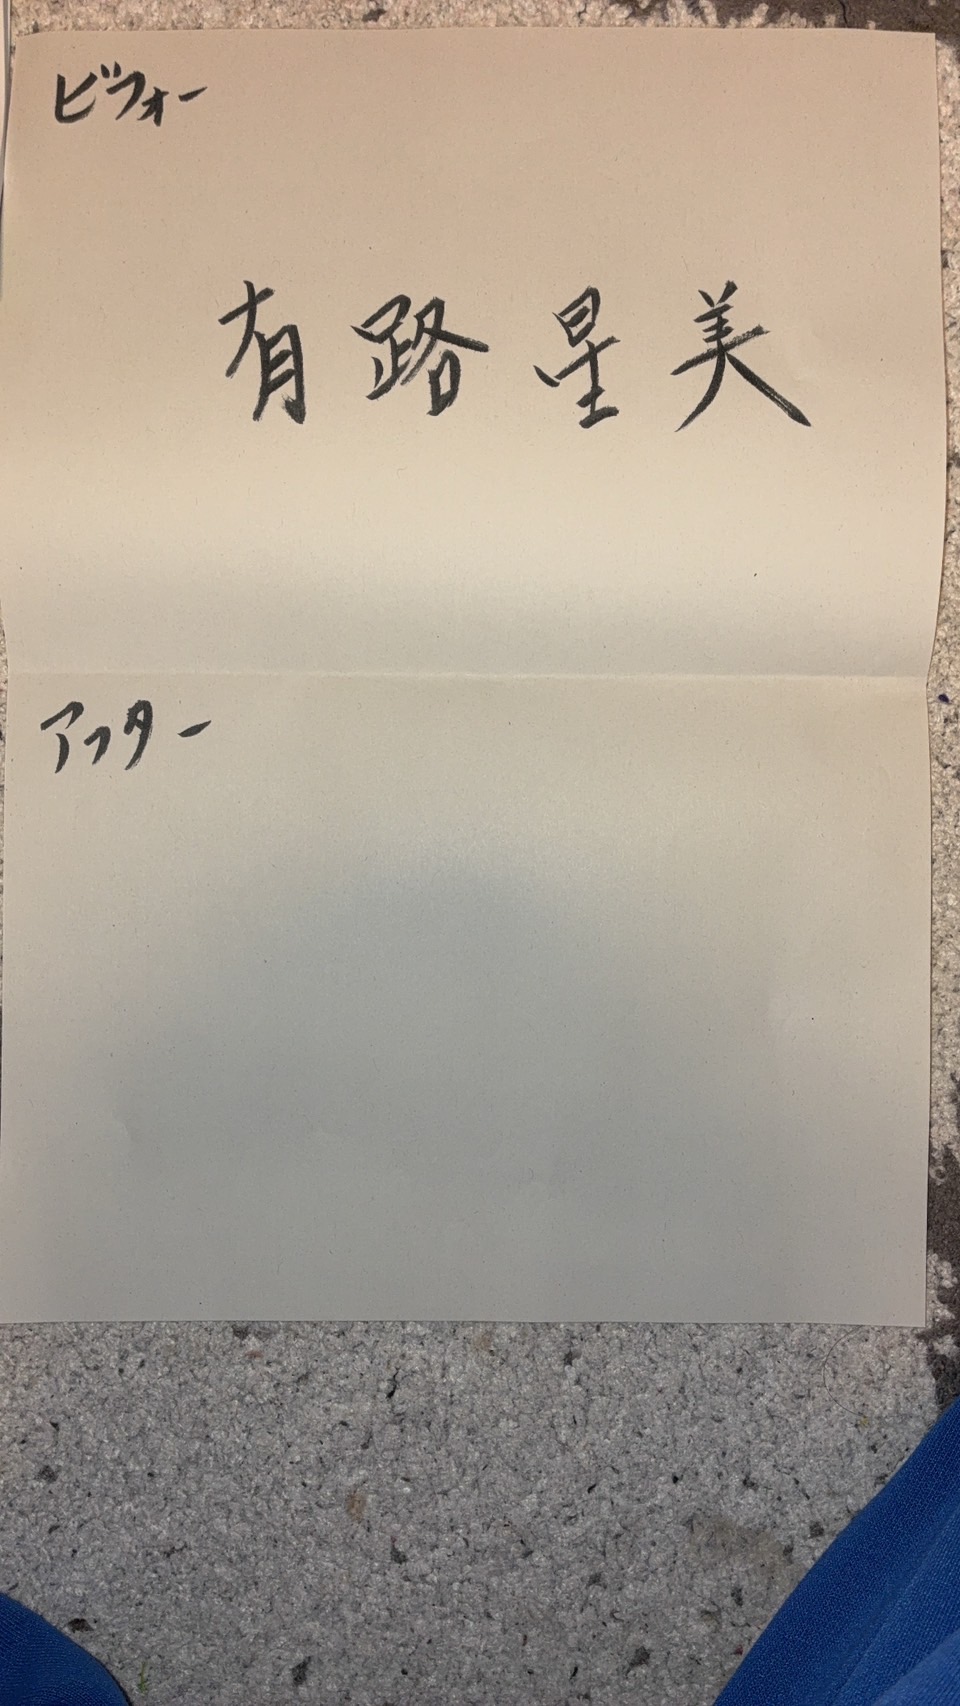 ビフォー
有路星美
アフター